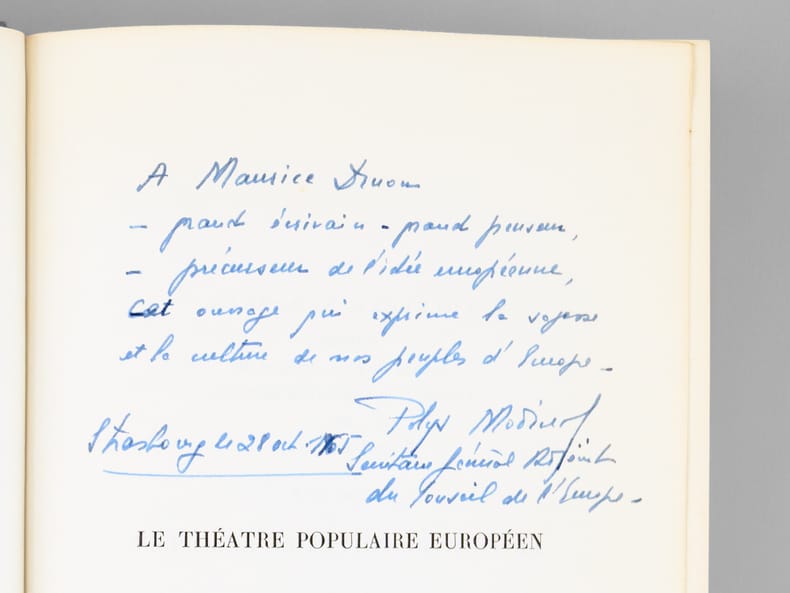 A Maurice Druon
- grand écrivain - grand penseur,
- précurseur de l'idée européenne,
cet ouvrage qui exprime la sagesse
et la culture de nos peuples d'Europe -
Polys Modinos
Strasbourg le 28 oct. 1965
Secrétaire Général Adjoint
du Conseil de l'Europe -
LE THÉATRE POPULAIRE EUROPÉEN